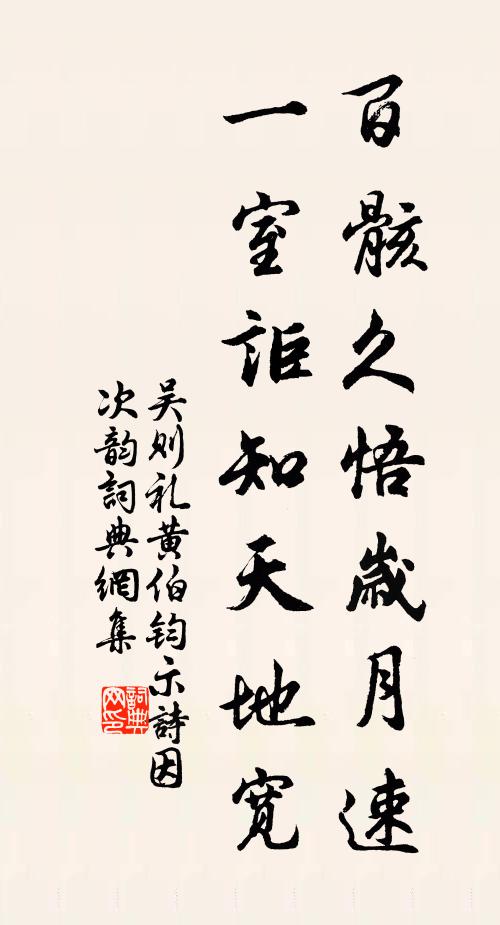 百骸久悟歲月速
一室詎知天地寬
吴则礼黄伯钧示詩因
次韵詞典網集
詞典网印